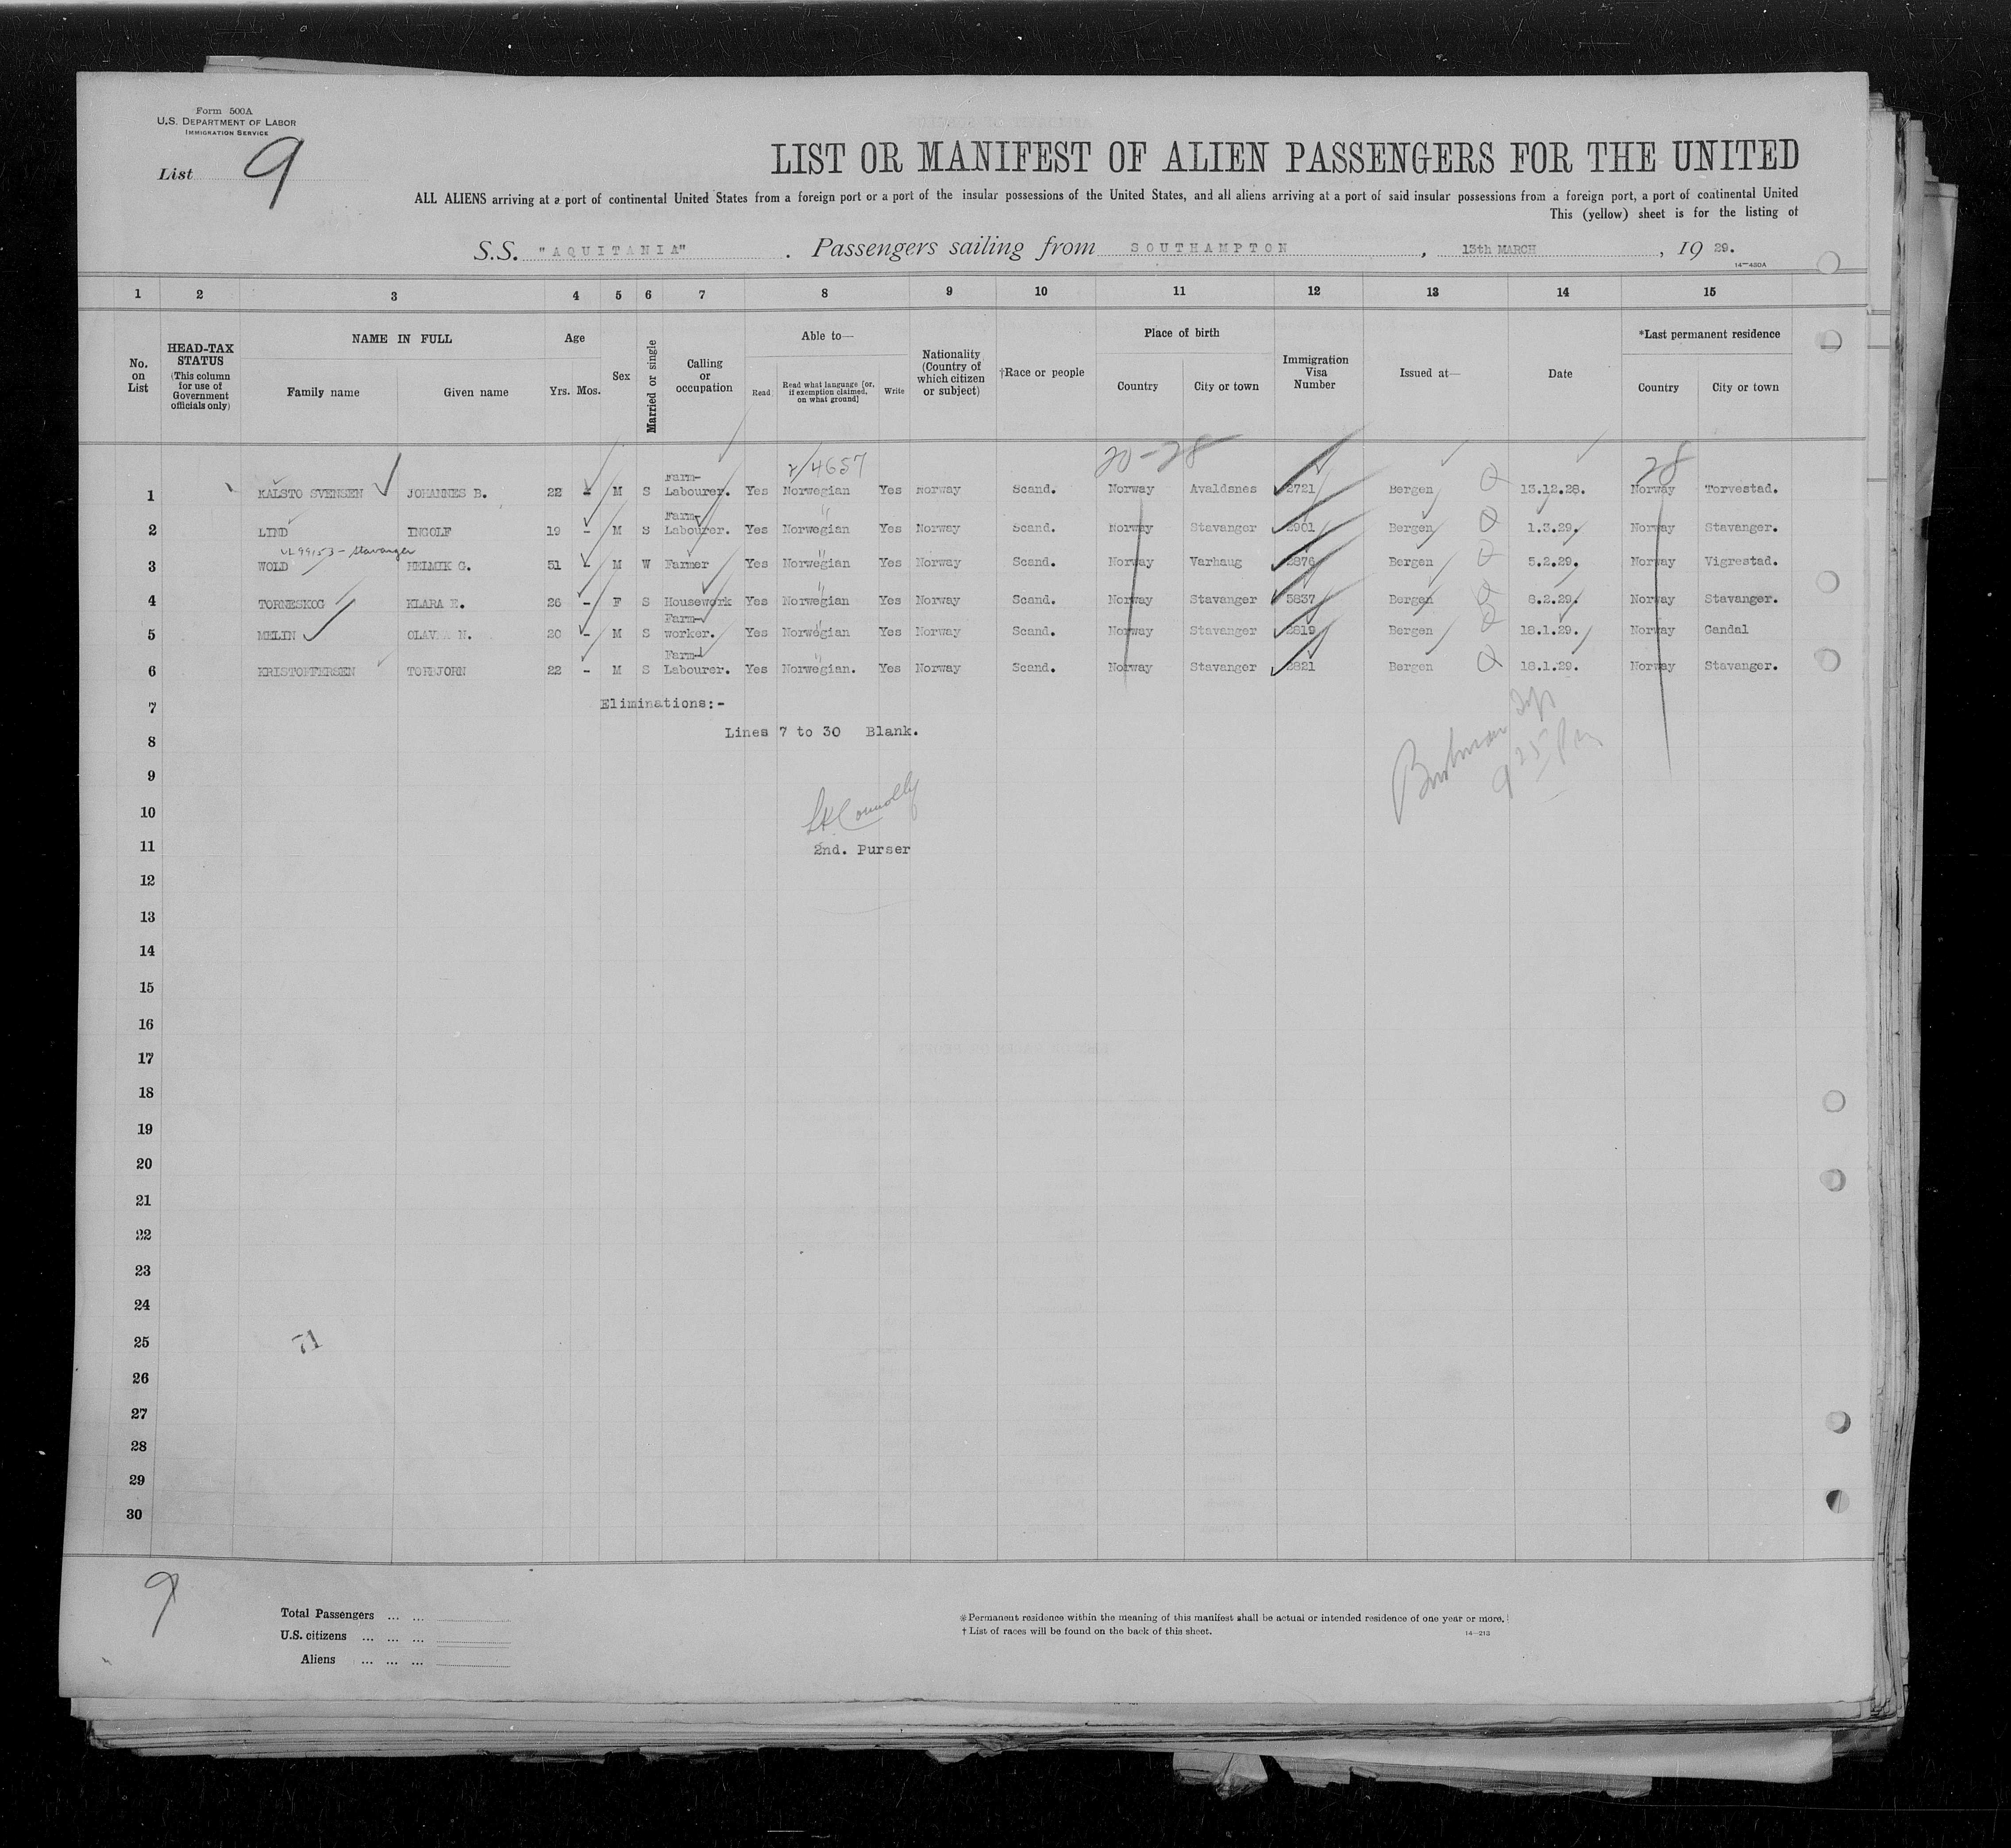 Form 500A
U.S. DEPARTMENT OF LABOR
IMMIGRATION SERVICE
List 9
LIST OR MANIFEST OF ALIEN PASSENGERS FOR THE UNITED
ALL ALIENS arriving at a port of continental United States from a foreign port or a port of the insular possessions of the United States, and all aliens arriving at a port of said insular possessions from a foreign port, a port of continental United
This (yellow) sheet is for the listing of
S.S. "AQUITANIA" . Passengers sailing from SOUTHAMPTON , 13th MARCH , 19 29.
14—430A
1 2 3 4 5 6 7 8 9 10 11 12 13 14 15
No. on List
HEAD-TAX STATUS (This column for use of Government officials only)
NAME IN FULL
Family name Given name
Age
Yrs. Mos.
Sex
Married or single
Calling or occupation
Able to—
Read Read what language [or, if exemption claimed, on what ground] Write
Nationality (Country of which citizen or subject)
†Race or people
Place of birth
Country City or town
Immigration Visa Number
Issued at—
Date
*Last permanent residence
Country City or town
2/4657 20-28 28
1 KALSTO SVENSEN JOHANNES B. 22 - M S Farm-Labourer. Yes Norwegian Yes Norway Scand. Norway Avaldsnes 2721 Bergen 13.12.28. Norway Torvestad.
2 LIND INGOLF 19 - M S Farm-Labourer. Yes Norwegian " Yes Norway Scand. Norway Stavanger 2901 Bergen 1.3.29. Norway Stavanger.
VL 99153 - Stavanger
3 WOLD HELMIK G. 51 - M W Farmer Yes Norwegian " Yes Norway Scand. Norway Varhaug 2876 Bergen 5.2.29. Norway Vigrestad.
4 TORNESKOG KLARA E. 26 - F S Housework Yes Norwegian " Yes Norway Scand. Norway Stavanger 5837 Bergen 8.2.29. Norway Stavanger.
5 MELIN OLAV N. 20 - M S Farm-worker. Yes Norwegian " Yes Norway Scand. Norway Stavanger 2819 Bergen 18.1.29. Norway Gandal
6 KRISTOFFERSEN TORBJORN 22 - M S Farm-Labourer. Yes Norwegian. " Yes Norway Scand. Norway Stavanger 2821 Bergen 18.1.29. Norway Stavanger.
7 Eliminations:-
Lines 7 to 30 Blank.
8
9
10 Connolly
11 2nd. Purser
9 25 Pm
12
13
14
15
16
17
18
19
20
21
22
23
24
25
71
26
27
28
29
30
9
Total Passengers ... ...
U.S. citizens ... ... ...
Aliens ... ... ...
*Permanent residence within the meaning of this manifest shall be actual or intended residence of one year or more.
†List of races will be found on the back of this sheet.
14—213